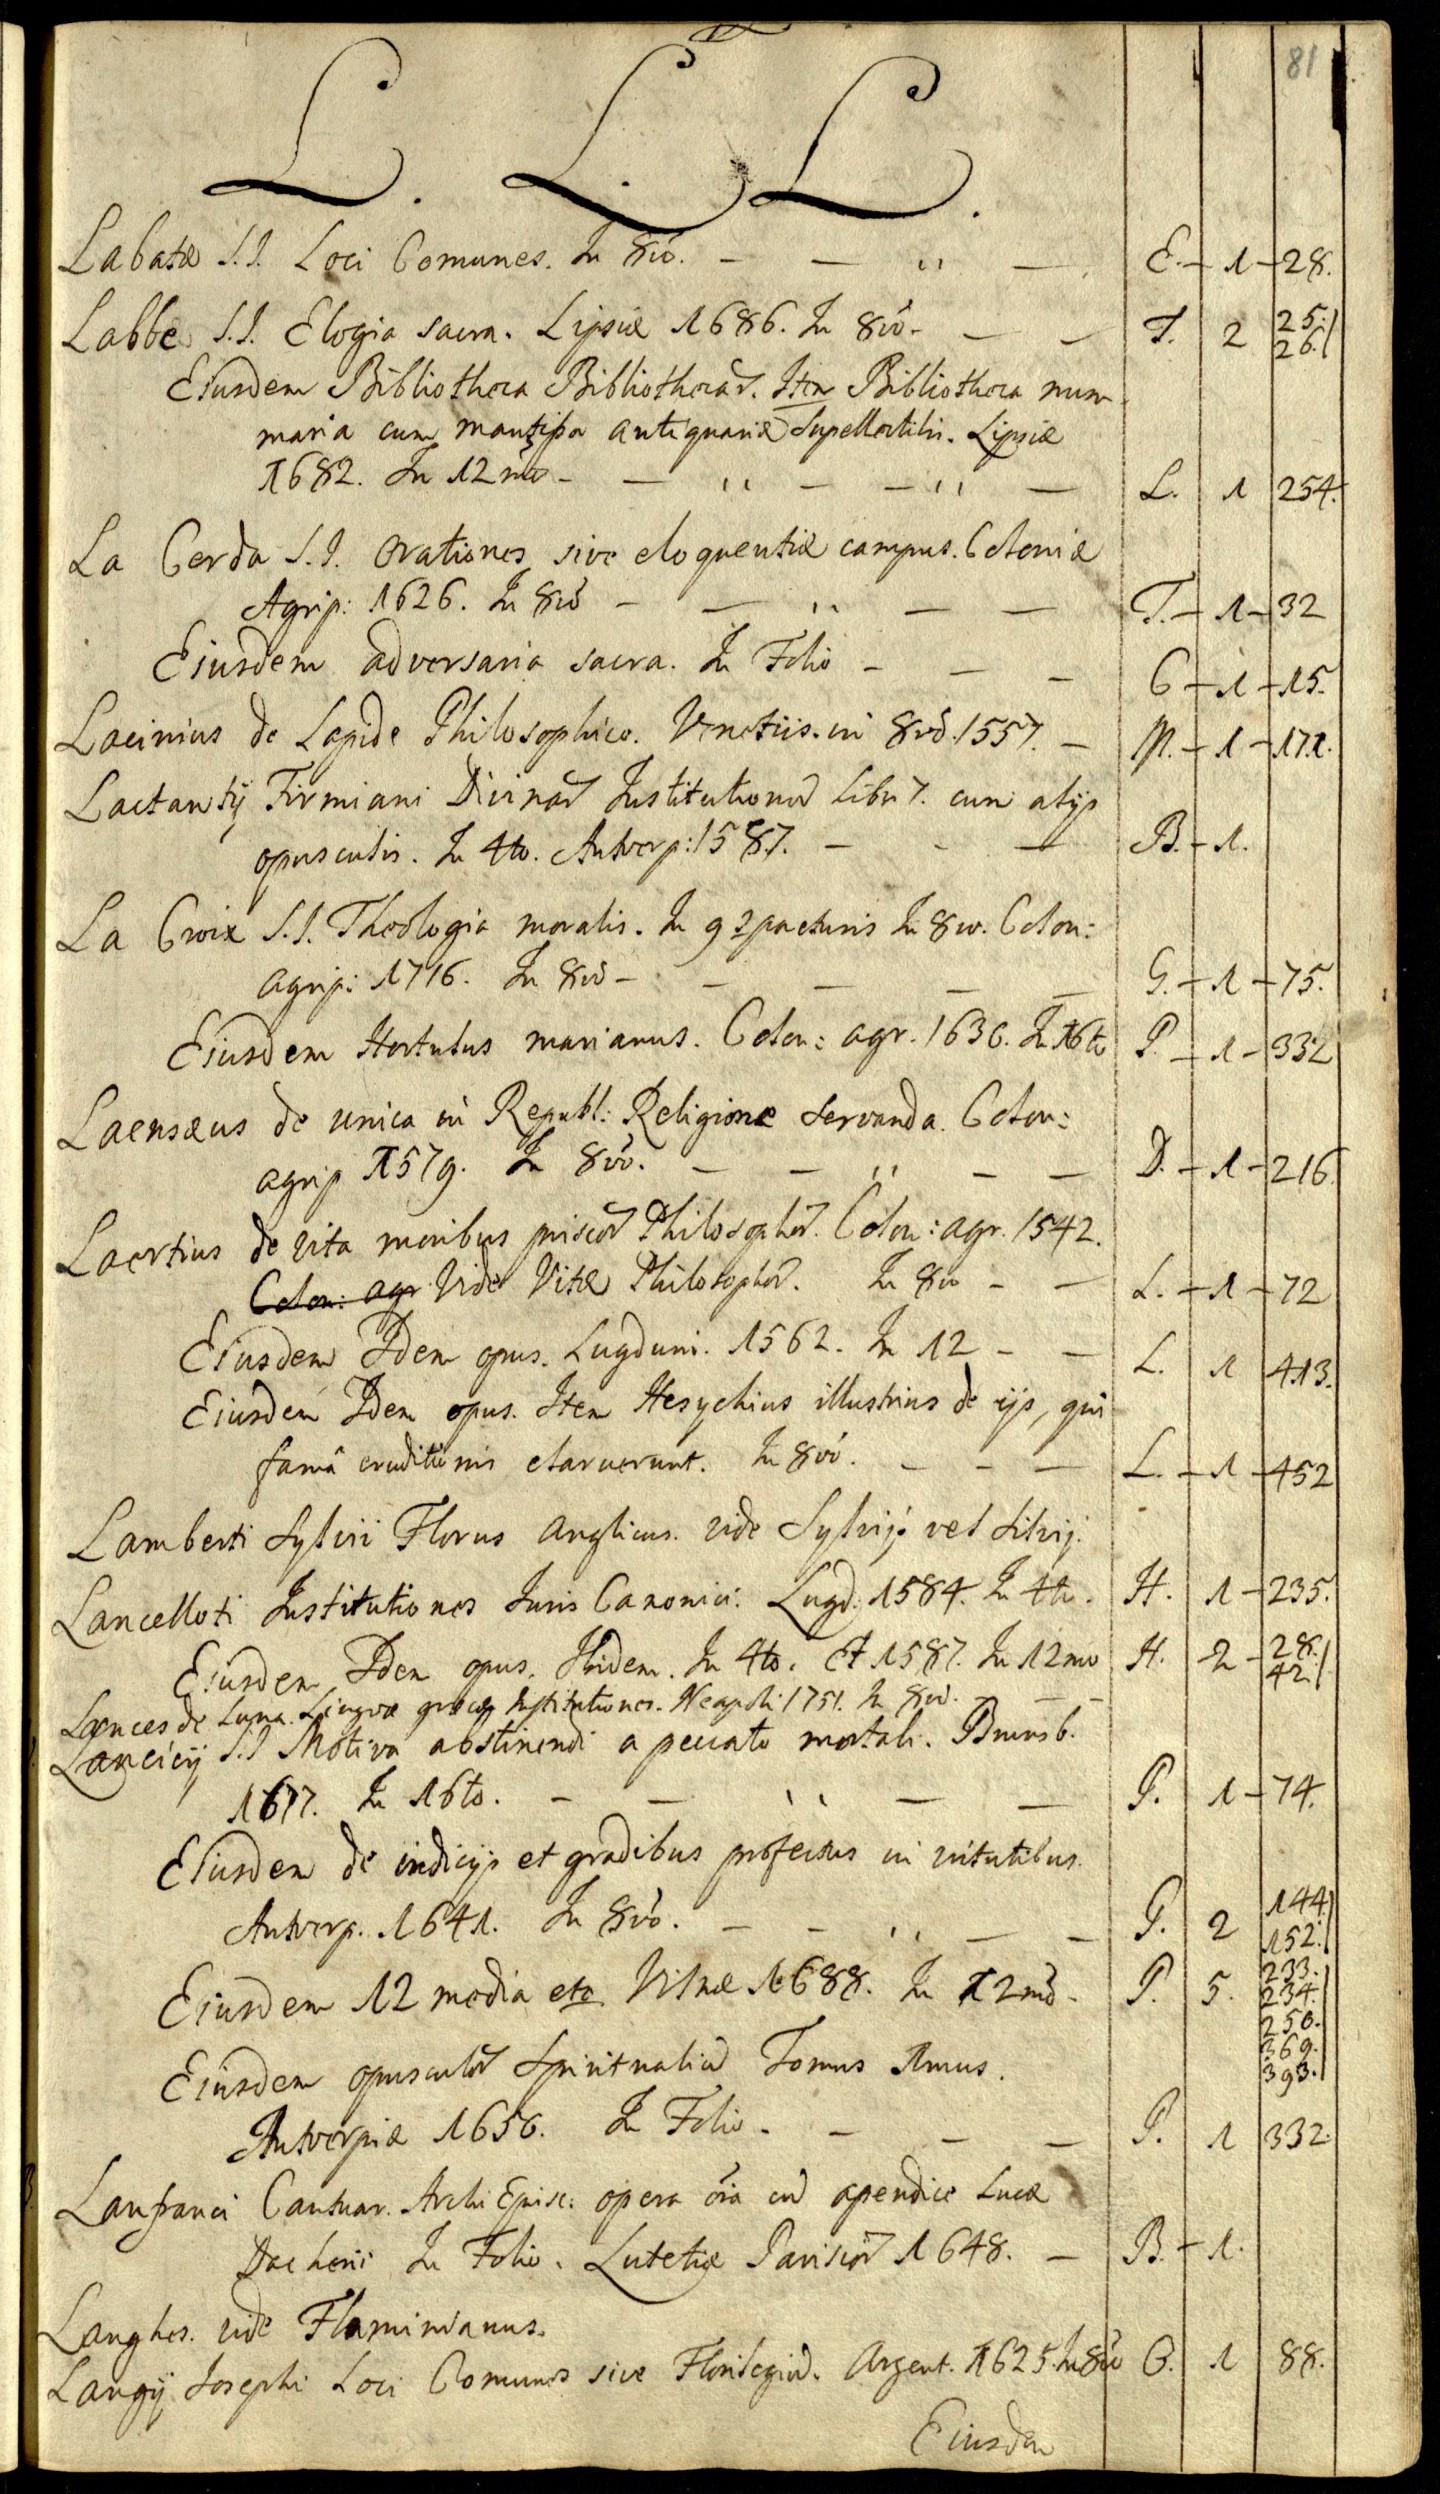 81
L. L. L.
Labatæ S.I. Loci Comunes. In 8vo. — — „ — E. — 1 — 28.
Labbe S.I. Elogia sacra. Lipsiæ 1686. In 8vo. — — T. 2 25. 26.
Eiusdem Bibliotheca Bibliothecar. Item Bibliotheca num-
maria cum mantissa antiquariæ supellectilis. Lipsiæ
1682. In 12mo — — „ — — „ — L. 1 254.
La Cerda S.I. Orationes sive eloquentiæ campus. Coloniæ
Agrip: 1626. In 8vo — — „ — — T. — 1 — 32
Eiusdem adversaria sacra. In Folio — — — C — 1 — 15.
Lacinius de Lapide Philosophico. Venetiis. in 8vo. 1557. — M. — 1 — 171.
Lactantij Firmiani Divinar Institutionũ Libri 7. cum alijs
opusculis. In 4to. Antverp: 1587. — - — B. — 1.
La Croix S.I. Theologia moralis. In 9 compacturis In 8vo. Colon:
agrip: 1716. In 8vo — — — — — G. — 1 — 75.
Eiusdem Hortulus marianus. Colon: agr. 1630. In 16to P. — 1 — 332
Laensæus de unica in Republ: Religione servanda. Colon:
agrip 1579. In 8vo. — — „ — — D. — 1 — 216
Laertius de vita moribus priscor Philosophor. Colon: agr. 1542.
Colon: agr Vide Vitæ Philosophor. In 8vo — — L. — 1 — 72
Eiusdem Idem opus. Lugduni. 1562. In 12 — — L. 1 413.
Eiusdem Idem opus. Item Hesychius illustrius de ijs, qui
famâ eruditionis claruerunt. In 8vo. — — — L. — 1 — 452
Lamberti Sylvii Florus Anglicus. vide Sylvij vel Silvij.
Lancelloti Institutiones Juris Canonici. Lugd: 1584. In 4to. H. 1 — 235.
Eiusdem Idem opus. Ibidem. In 4to. Et 1587. In 12mo H. 2 — 28. 42.
Lances de Luna. Linguæ græcæ Institutiones. Neapoli 1751. In 8vo. — — —
Lancicij S.I Motiva abstinendi a peccato mortali. Brunsb.
1677. In 16to. — — „ — — P. 1 — 74.
Eiusdem de indicijs et gradibus profectus in virtutibus.
Antverp. 1641. In 8vo. — — „ — — P. 2 144. 152.
Eiusdem 12 media etc Vilnæ 1688. In 12mo — P. 5. 233. 234. 250. 369. 393.
Eiusdem opusculor Spiritualiũ Tomus 1mus.
Antverpiæ 1650. In Folio. — — — P. 1 332.
Lanfranci Cantuar. Archi Episc: opera oĩa cũ apendice Lucæ
Dacherii In Folio. Lutetiæ Parisior 1648. — B. — 1.
Langhes. vide Flaminianus.
Langij Josephi Loci Comunes sive Florilegiũ. Argent. 1625. In 8vo O. 1 88.
Eiusdem